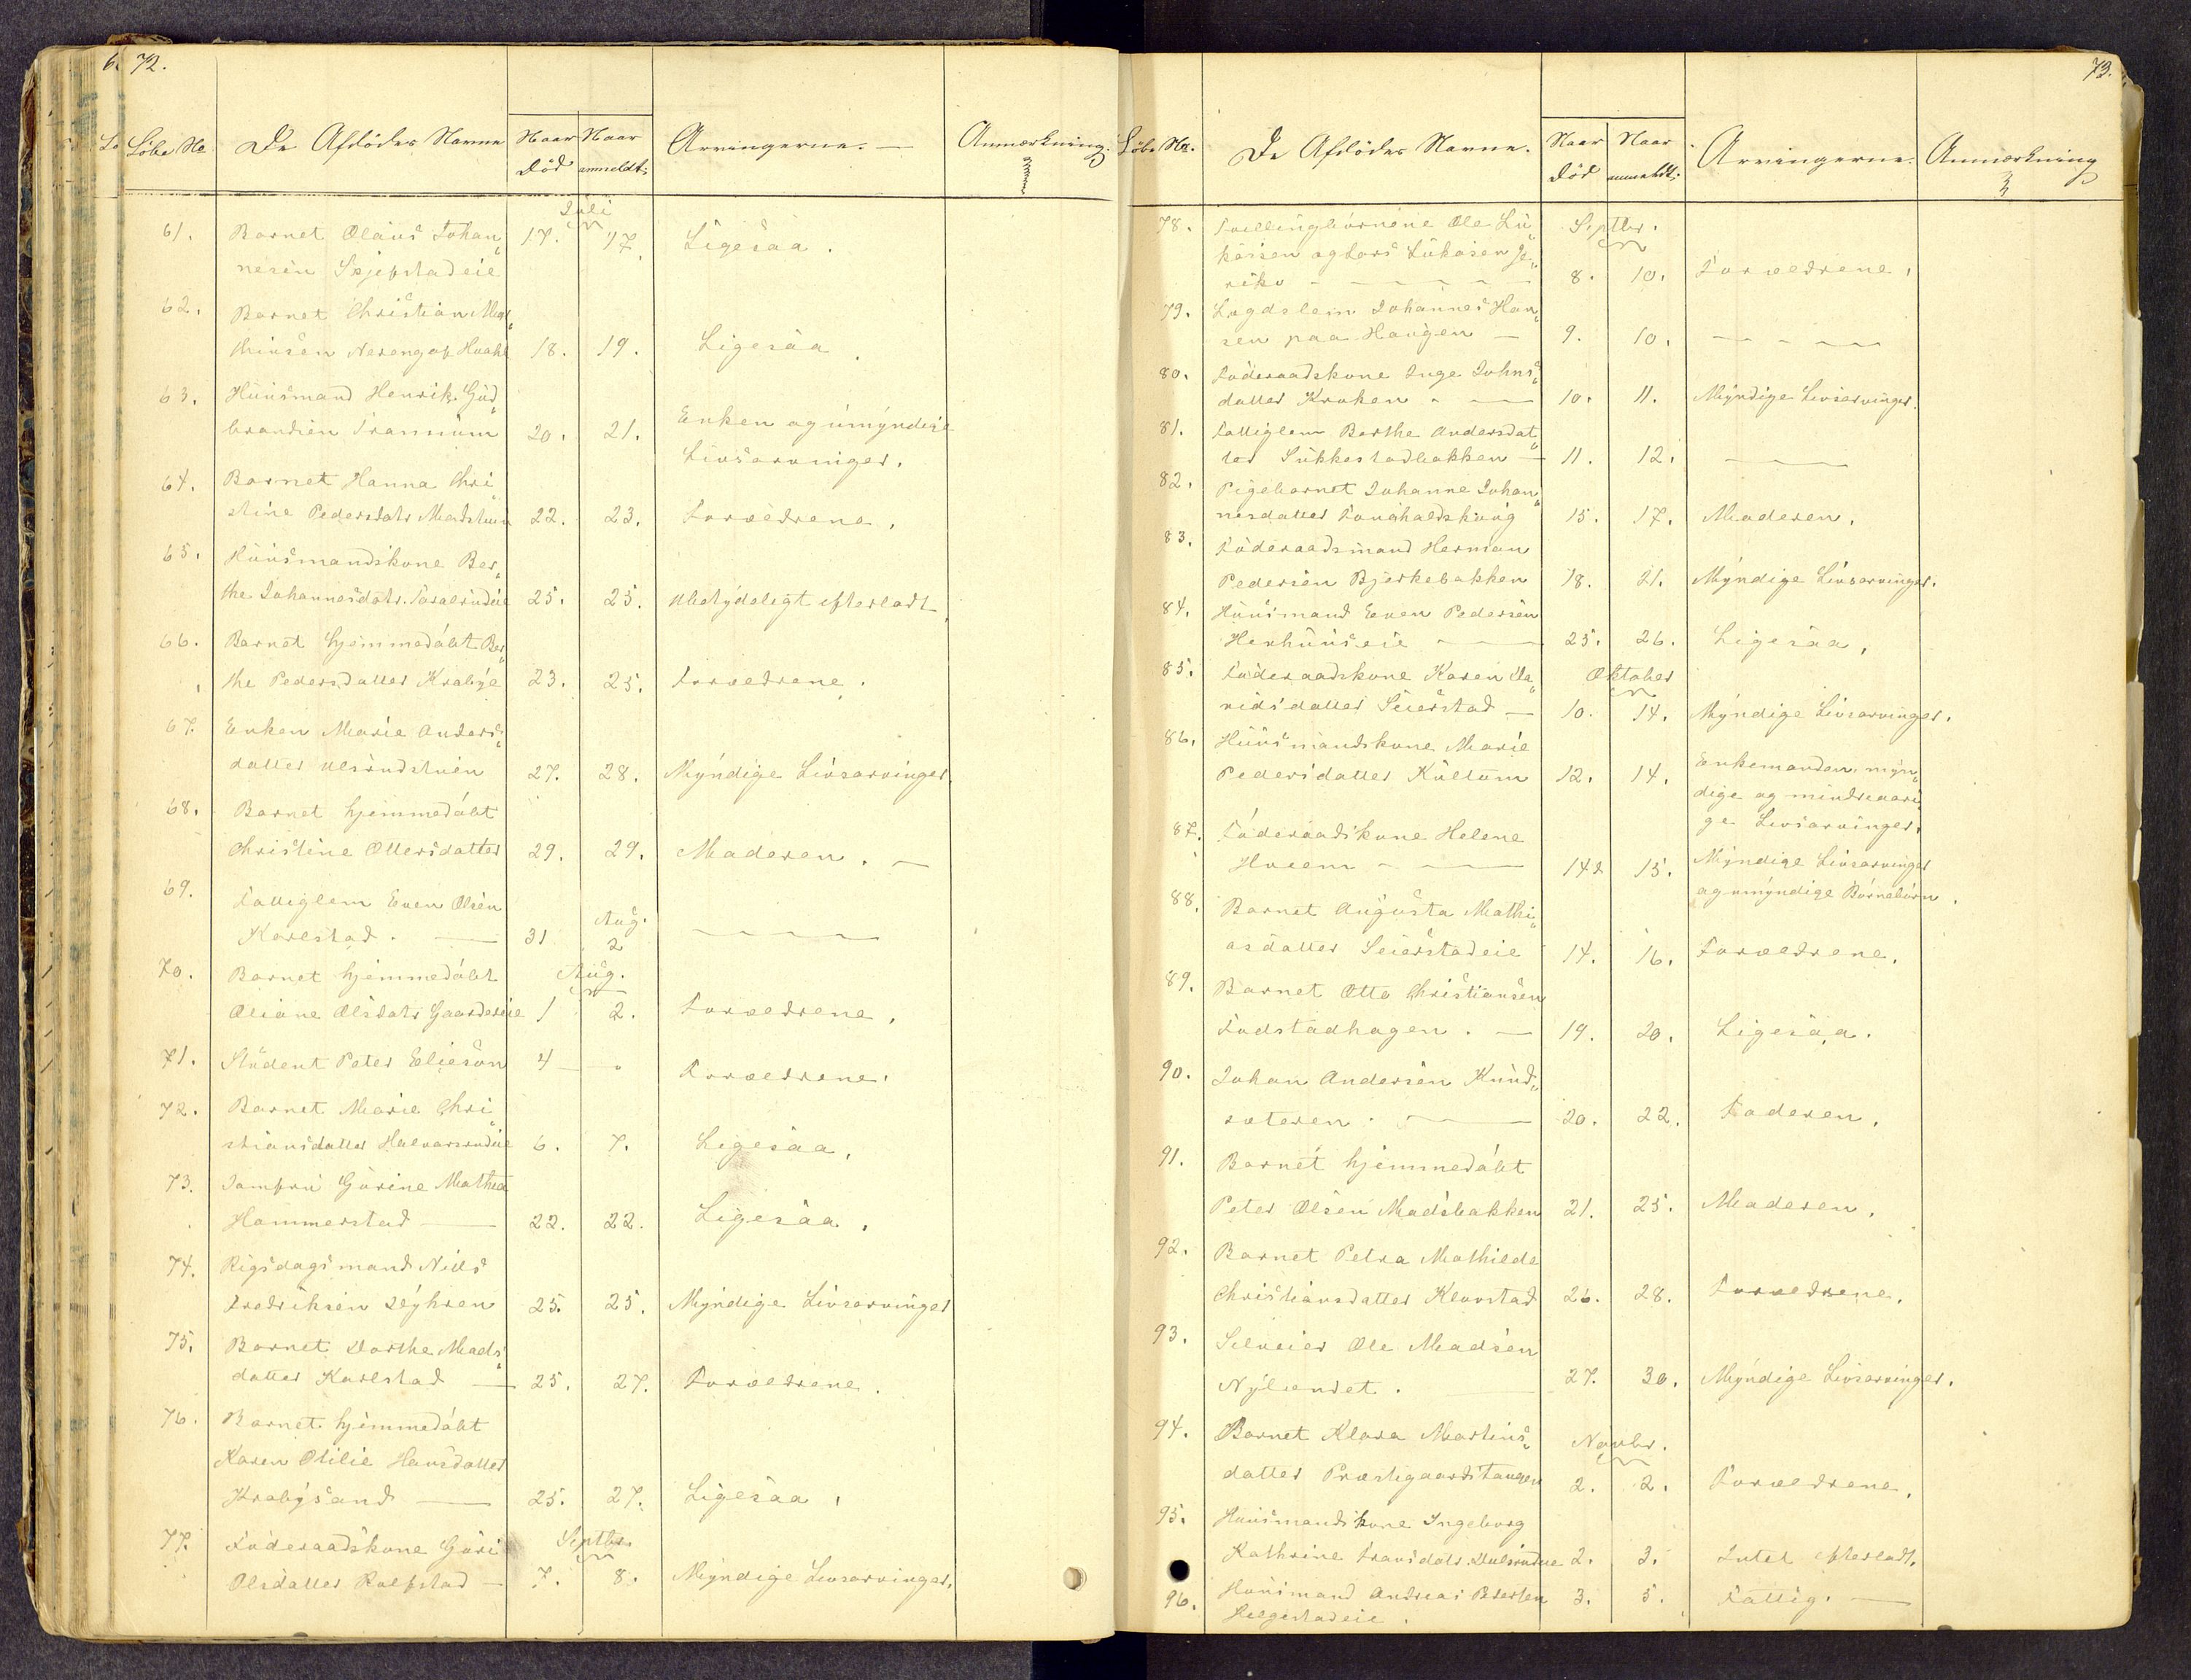 72.
Löbe No
De Afdödes Navne
Naar
Død
Naar
anmeldt.
Arvingerne. —
Anmærkning.
Juli
61. Barnet Olaus Johan„ 17. 17. Ligesaa.
nesen
62. Barnet Christian
18. 19. Ligesaa
63. Huusmand Henrik Gud„
brandsen Tranum 20. 21. Enken og umyndige
Livsarvinger.
64. Barnet Hanna Chri„
stine Pedersdatr 22. 23. Forældrene.
65. Huusmandskone Ber„
the Johannesdatr. 25. 25. Ubetydeligt efterladt
66. Barnet hjemmedöbt Ber„
the Pedersdatter Krabye 23. 25. Forældrene.
67. Enken Marie Anders„
datter Ulsrudstuen 27. 28. Myndige Livsarvinger
68. Barnet hjemmedöbt
Christine Ottersdatter 29. 29. Moderen. —
69. Fattiglem Even Olsen
Aug.
Karlstad. — 31 2 ———
70. Barnet hjemmedöbt Aug.
Oliane Olsdatr Gaardereie 1 2. Forældrene.
71. Student Peter Elieson 4 — " Forældrene.
72. Barnet Marie Chri„
stiansdatter Halvorsrudeie 6. 7. Ligesaa.
73. Jomfru Gurine Mathea
Hammerstad — 22. 22. Ligesaa.
74. Rigsdagsmand Niels
Fredriksen Dÿhren 25. 25. Myndige Livsarvinger
75. Barnet Dorthe Mads„
datter Karlstad — 25. 27. Forældrene.
76. Barnet hjemmedöbt
Karen Otilie Hansdatter
Krabysand — 25. 27. Ligesaa.
77. Föderaadskone Guri Septbr.
Olsdatter Rolfstad — 7. 8. Myndige Livsarvinger.
73.
Löbe No.
De Afdödes Navne.
Naar
Død
Naar
anmeldt.
Arvingerne.
Anmærkning
78. Tvillingbörnene Ole Lu„ Septbr.
kassen og Lars Lukasen Je„
riko — 8. 10. Forældrene.
79. Lægdslem Johannes Han„
sen paa Haugen — 9. 10. ———
80. Föderaadskone Inge Johns„
datter Kroken — 10. 11. Myndige Livsarvinger.
81. Fattiglem Berthe Andersdat„
ter Sukkestadbakken — 11. 12. ———
82. Pigebarnet Johanne Johan„
nesdatter 15. 17. Moderen.
83. Föderaadsmand Herman
Pedersen Bjerkebakken 18. 21. Myndige Livsarvinger.
84. Huusmand Even Pedersen
Herhuuseie — 25. 26. Ligesaa.
85. Föderaadskone Karen Da„ Oktober
vidsdatter Seierstad — 10. 14. Myndige Livsarvinger.
86. Huusmandskone Marie
Pedersdatter Kullum 12. 14. Enkemanden, myn„
dige og mindreaari„
ge Livsarvinger.
87. Föderaadskone Helene
Hveem — 14 15. Myndige Livsarvinger
og umyndige Börnebörn.
88. Barnet Augusta Mathi„
asdatter Seierstadeie 14. 16. Forældrene.
89. Barnet Otto Christiansen
Fodstadhagen. — 19. 20. Ligesaa.
90. Johan Andersen Knud„
sæteren. — 20. 22. Faderen.
91. Barnet hjemmedöbt
Peter Olsen Madsbakken 21. 25. Moderen.
92. Barnet Petra Mathilde
Christiansdatter Klevstad 26. 28. Forældrene.
93. Selveier Ole Madsen
Nylændet. 27. 30. Myndige Livsarvinger.
94. Barnet Klara Martins„ Novbr.
datter Præstegaardstangen 2. 2. Forældrene.
95. Huusmandskone Ingeborg
Kathrine 2. 3. Intet efterladt.
96. Huusmand Andreas Petersen 3. 5. Fattig. —
Helgestadeie.